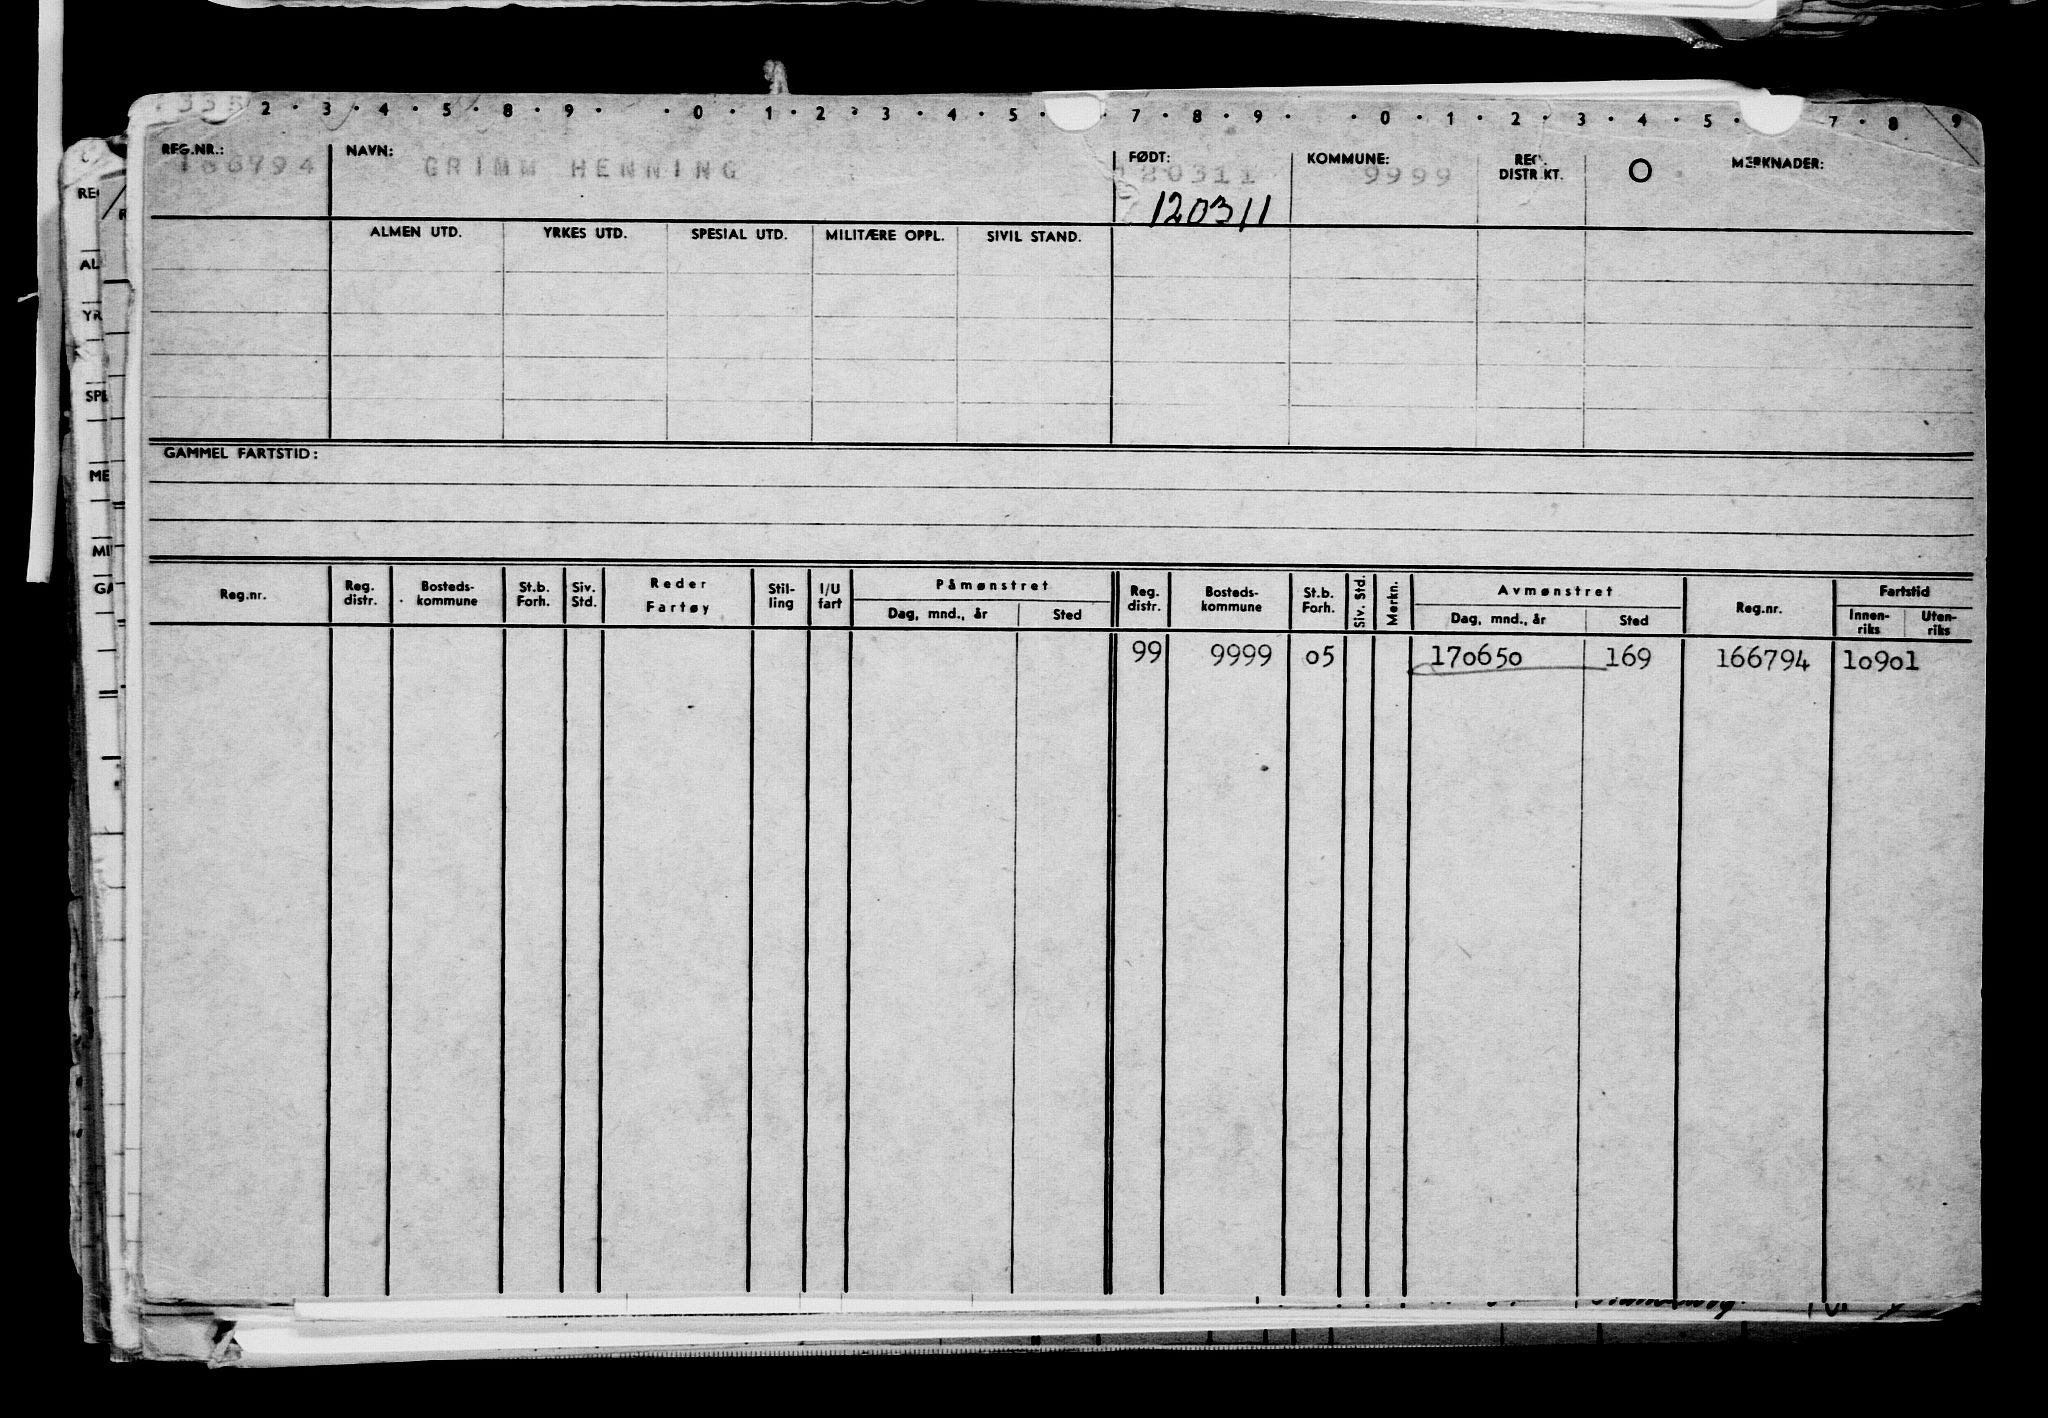 2 · 3 · 4 · 5 · 8 · 9 · · 0 · 1 · 2 · 3 · 4 · 5 · · 7 · 8 · 9 · · 0 · 1 · 2 · 3 · 4 · 5 · 7 · 8 · 9
REG.NR.: NAVN: FØDT: KOMMUNE: REG. DISTRIKT. O MERKNADER:
166794 GRIMM HENNING 120311 9999
120311
ALMEN UTD. YRKES UTD. SPESIAL UTD. MILITÆRE OPPL. SIVIL STAND.
GAMMEL FARTSTID:
Reg.nr. Reg. distr. Bosteds-kommune St.b. Forh. Siv. Std. Reder Fartøy Stil-ling I/U fart Påmønstret Dag, mnd., år Sted Reg. distr. Bosteds-kommune St.b. Forh. Siv. Std. Merkn. Avmønstret Dag, mnd., år Sted Reg.nr. Fartstid Innen-riks Uten-riks
99 9999 05 170650 169 166794 10901